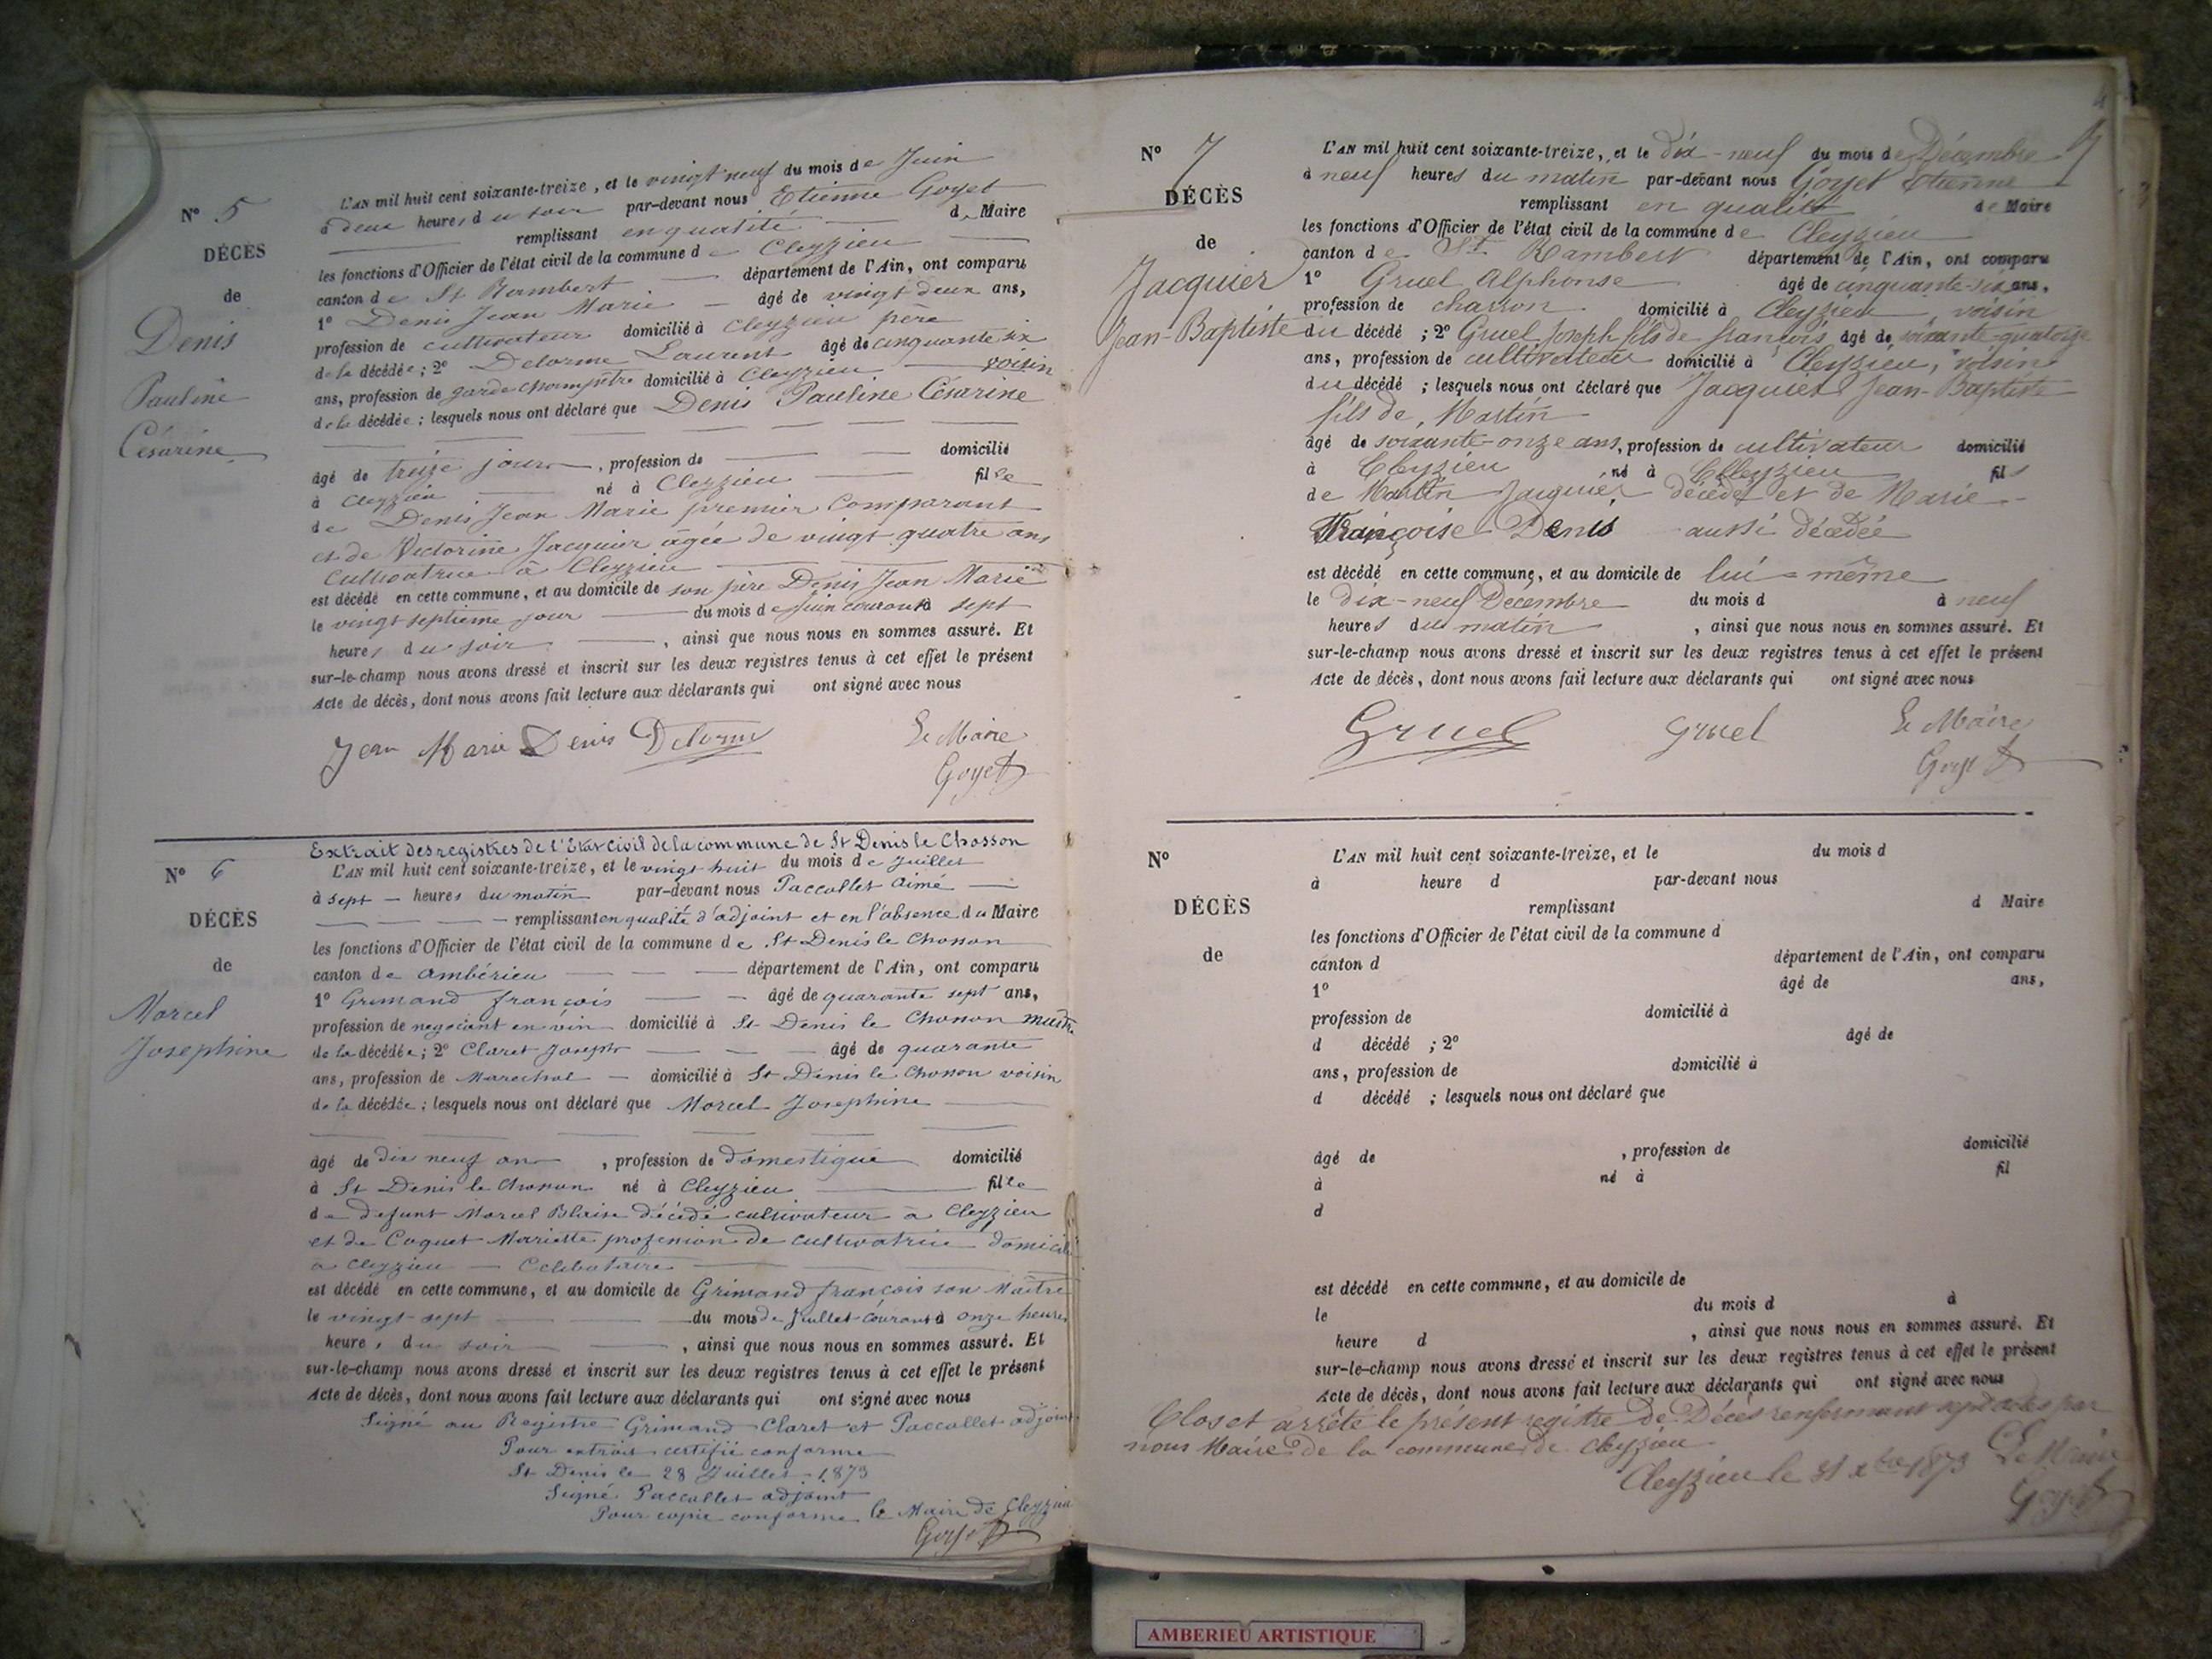 N° 5
DÉCÈS
de
Denis
Pauline
Césarine
L'AN mil huit cent soixante-treize, et le vingt neuf du mois de Juin
à deux heures du soir par-devant nous Etienne Goyet
remplissant en qualité de Maire
les fonctions d'Officier de l'état civil de la commune de Cleyzieu
canton de St Rambert département de l'Ain, ont comparu
1° Denis Jean Marie âgé de vingt deux ans,
profession de cultivateur domicilié à Cleyzieu père
de la décédée; 2° Delorme Laurent âgé de cinquante six
ans, profession de garde champêtre domicilié à Cleyzieu voisin
de la décédée; lesquels nous ont déclaré que Denis Pauline Césarine
âgé de treize jours, profession de domicilié
à Cleyzieu né à Cleyzieu fille
de Denis Jean Marie premier comparant
et de Victorine Jacquier âgée de vingt quatre ans
cultivatrice à Cleyzieu
est décédé en cette commune, et au domicile de son père Denis Jean Marie
le vingt septième jour du mois de Juin courant à sept
heures du soir, ainsi que nous nous en sommes assuré. Et
sur-le-champ nous avons dressé et inscrit sur les deux registres tenus à cet effet le présent
Acte de décès, dont nous avons fait lecture aux déclarants qui ont signé avec nous
Jean Marie Denis Delorme Le Maire
Goyet
N° 6
DÉCÈS
de
Marcel
Josephine
Extrait des registres de l'Etat civil de la commune de St Denis le Chosson
L'AN mil huit cent soixante-treize, et le vingt huit du mois de Juillet
à sept heures du matin par-devant nous Paccallet Aimé
remplissant en qualité d'adjoint et en l'absence du Maire
les fonctions d'Officier de l'état civil de la commune de St Denis le Chosson
canton de Ambérieu département de l'Ain, ont comparu
1° Grimand françois âgé de quarante sept ans,
profession de negociant en vin domicilié à St Denis le Chosson
de la décédée; 2° Claret Joseph âgé de quarante
ans, profession de Marechal domicilié à St Denis le Chosson voisin
de la décédée; lesquels nous ont déclaré que Marcel Josephine
âgé de dix neuf ans, profession de domestique domicilié
à St Denis le Chosson né à Cleyzieu fille
de defunt Marcel Blaise décédé cultivateur à Cleyzieu
et de Coquet Mariette profession de cultivatrice domicilié
a Cleyzieu Celibataire
est décédé en cette commune, et au domicile de Grimand françois son Maître
le vingt sept du mois de Juillet courant à onze heures
heures du soir, ainsi que nous nous en sommes assuré. Et
sur-le-champ nous avons dressé et inscrit sur les deux registres tenus à cet effet le présent
Acte de décès, dont nous avons fait lecture aux déclarants qui ont signé avec nous
Signé au Registre Grimand Claret et Paccallet adjoint
Pour extrait certifié conforme
St Denis le 28 Juillet 1873
Signé Paccallet adjoint
Pour copie conforme le Maire de Cleyzieu
Goyet
N° 7
DÉCÈS
de
Jacquier
Jean-Baptiste
L'AN mil huit cent soixante-treize, et le dix-neuf du mois de Décembre
à neuf heures du matin par-devant nous Goyet Etienne
remplissant en qualité de Maire
les fonctions d'Officier de l'état civil de la commune de Cleyzieu
canton de St Rambert département de l'Ain, ont comparu
1° Gruel Alphonse âgé de cinquante-six ans,
profession de charron domicilié à Cleyzieu, voisin
du décédé; 2° Gruel Joseph fils de françois âgé de soixante-quatorze
ans, profession de cultivateur domicilié à Cleyzieu, voisin
du décédé; lesquels nous ont déclaré que Jacquier Jean-Baptiste
fils de, Martin
âgé de soixante-onze ans, profession de cultivateur domicilié
à Cleyzieu, né à Cleyzieu fils
de Martin Jacquier décédé et de Marie-
Françoise Denis aussi décédée
est décédé en cette commune, et au domicile de lui-même
le dix-neuf Décembre du mois d à neuf
heures du matin, ainsi que nous nous en sommes assuré. Et
sur-le-champ nous avons dressé et inscrit sur les deux registres tenus à cet effet le présent
Acte de décès, dont nous avons fait lecture aux déclarants qui ont signé avec nous
Gruel gruel Le Maire
Goyet
N°
DÉCÈS
de
L'AN mil huit cent soixante-treize, et le du mois d
à heure d par-devant nous
remplissant d Maire
les fonctions d'Officier de l'état civil de la commune d
canton d département de l'Ain, ont comparu
1° âgé de ans,
profession de domicilié à
d décédé ; 2° âgé de
ans, profession de domicilié à
d décédé ; lesquels nous ont déclaré que
âgé de , profession de domicilié
à né à fil
d
est décédé en cette commune, et au domicile de
le du mois d à
heure d , ainsi que nous nous en sommes assuré. Et
sur-le-champ nous avons dressé et inscrit sur les deux registres tenus à cet effet le présent
Acte de décès, dont nous avons fait lecture aux déclarants qui ont signé avec nous
Clos et arrêté le présent registre de Décès renfermant actes par
nous Maire de la commune de Cleyzieu
Cleyzieu le 31 xbre 1873 Le Maire
Goyet
AMBERIEU ARTISTIQUE